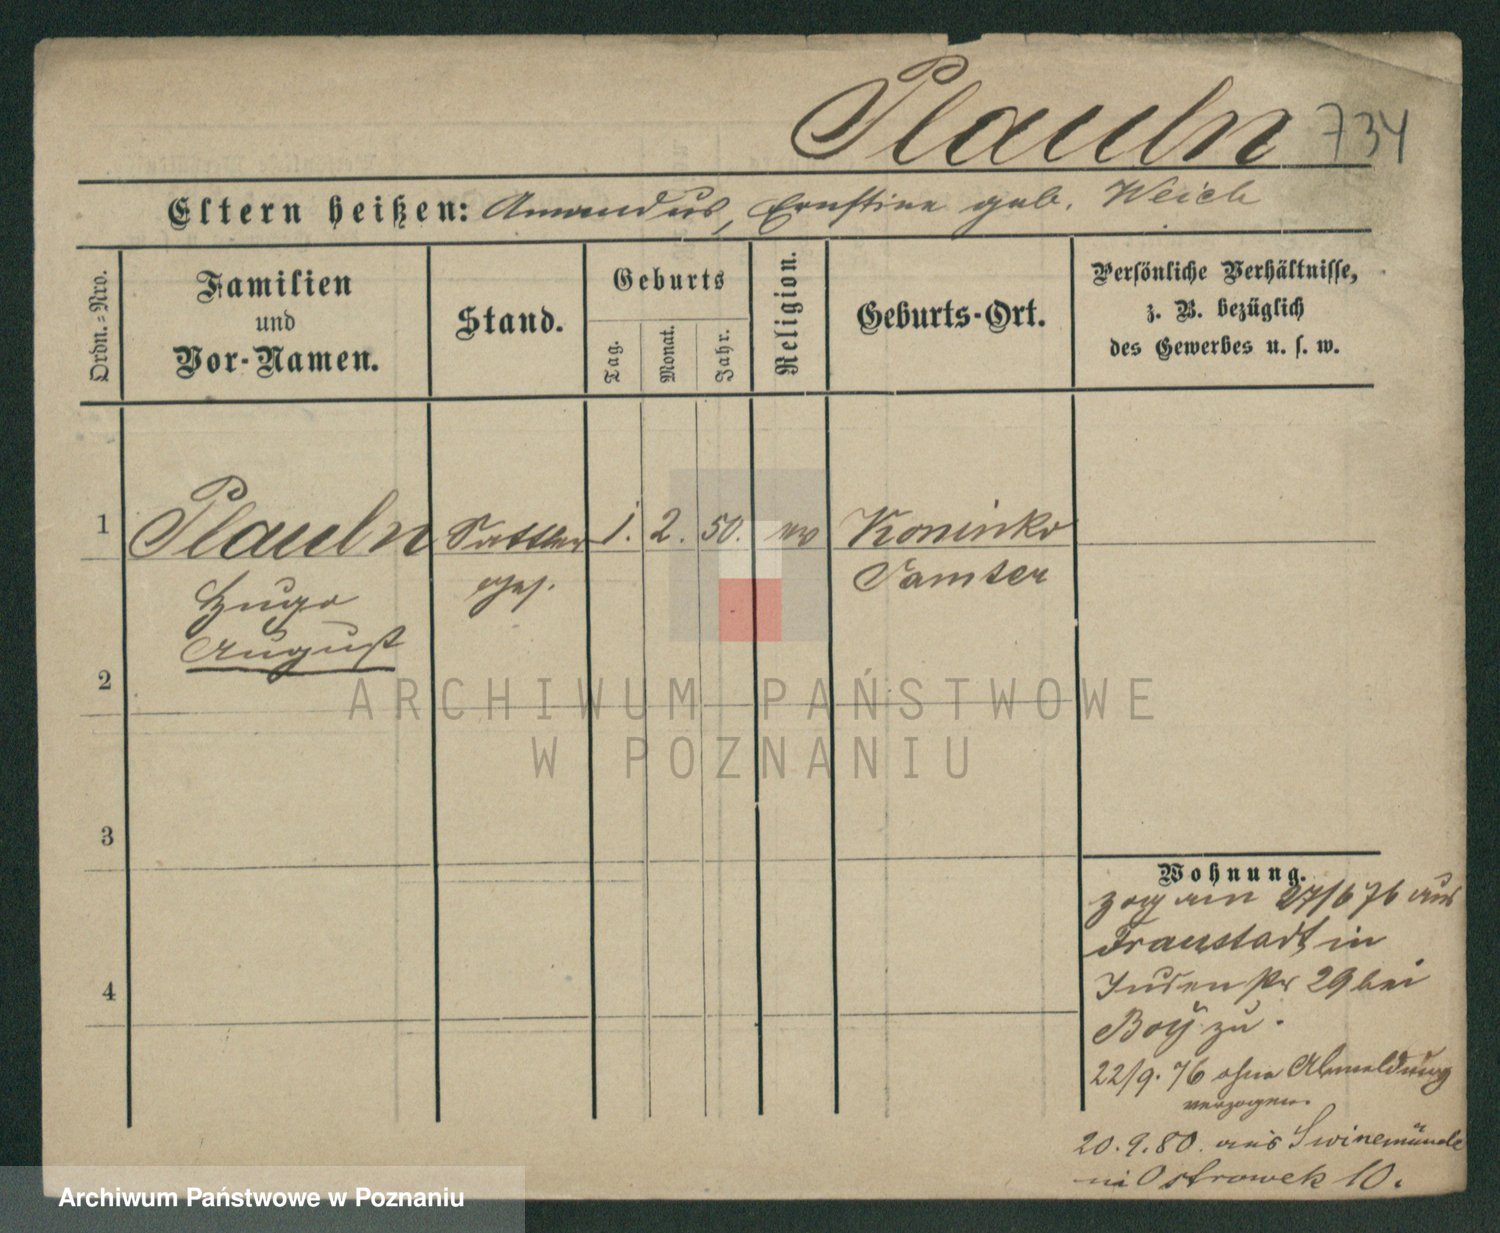 Plauln 734
Eltern heißen: Amandus, Ernstine geb. Weich
Ordn.-Nro.
Familien
und
Vor-Namen.
Stand.
Geburts
Tag.
Monat.
Jahr.
Religion.
Geburts-Ort.
Persönliche Verhältnisse,
z. B. bezüglich
des Gewerbes u. s. w.
1 Plauln Sattler 1. 2. 50. ev Koninko
Hugo ges. Samter
August
2
3
4
ARCHIWUM PAŃSTWOWE
W POZNANIU
Wohnung.
zog am 27/6 76 aus
Fraustadt in
Judenstr 29 bei
Boÿ zu.
22/9. 76 ohne Abmeldung
verzogen.
20. 9. 80. aus Swinemünde
in Ostrowek 10.
Archiwum Państwowe w Poznaniu